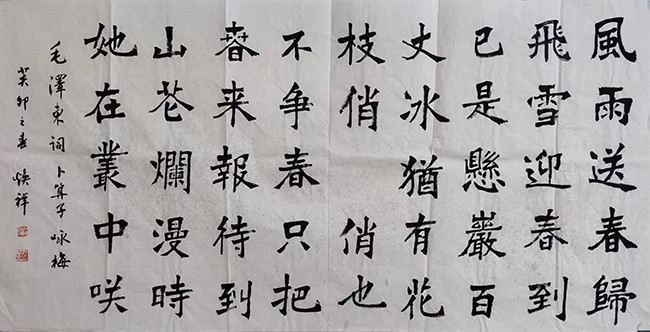 風雨送春歸
飛雪迎春到
已是懸巖百
丈冰猶有花
枝俏 俏也
不争春只把
春来報待到
山芲爛漫時
她在叢中咲
毛澤東词 卜算子 咏梅
癸卯之春 焕祥